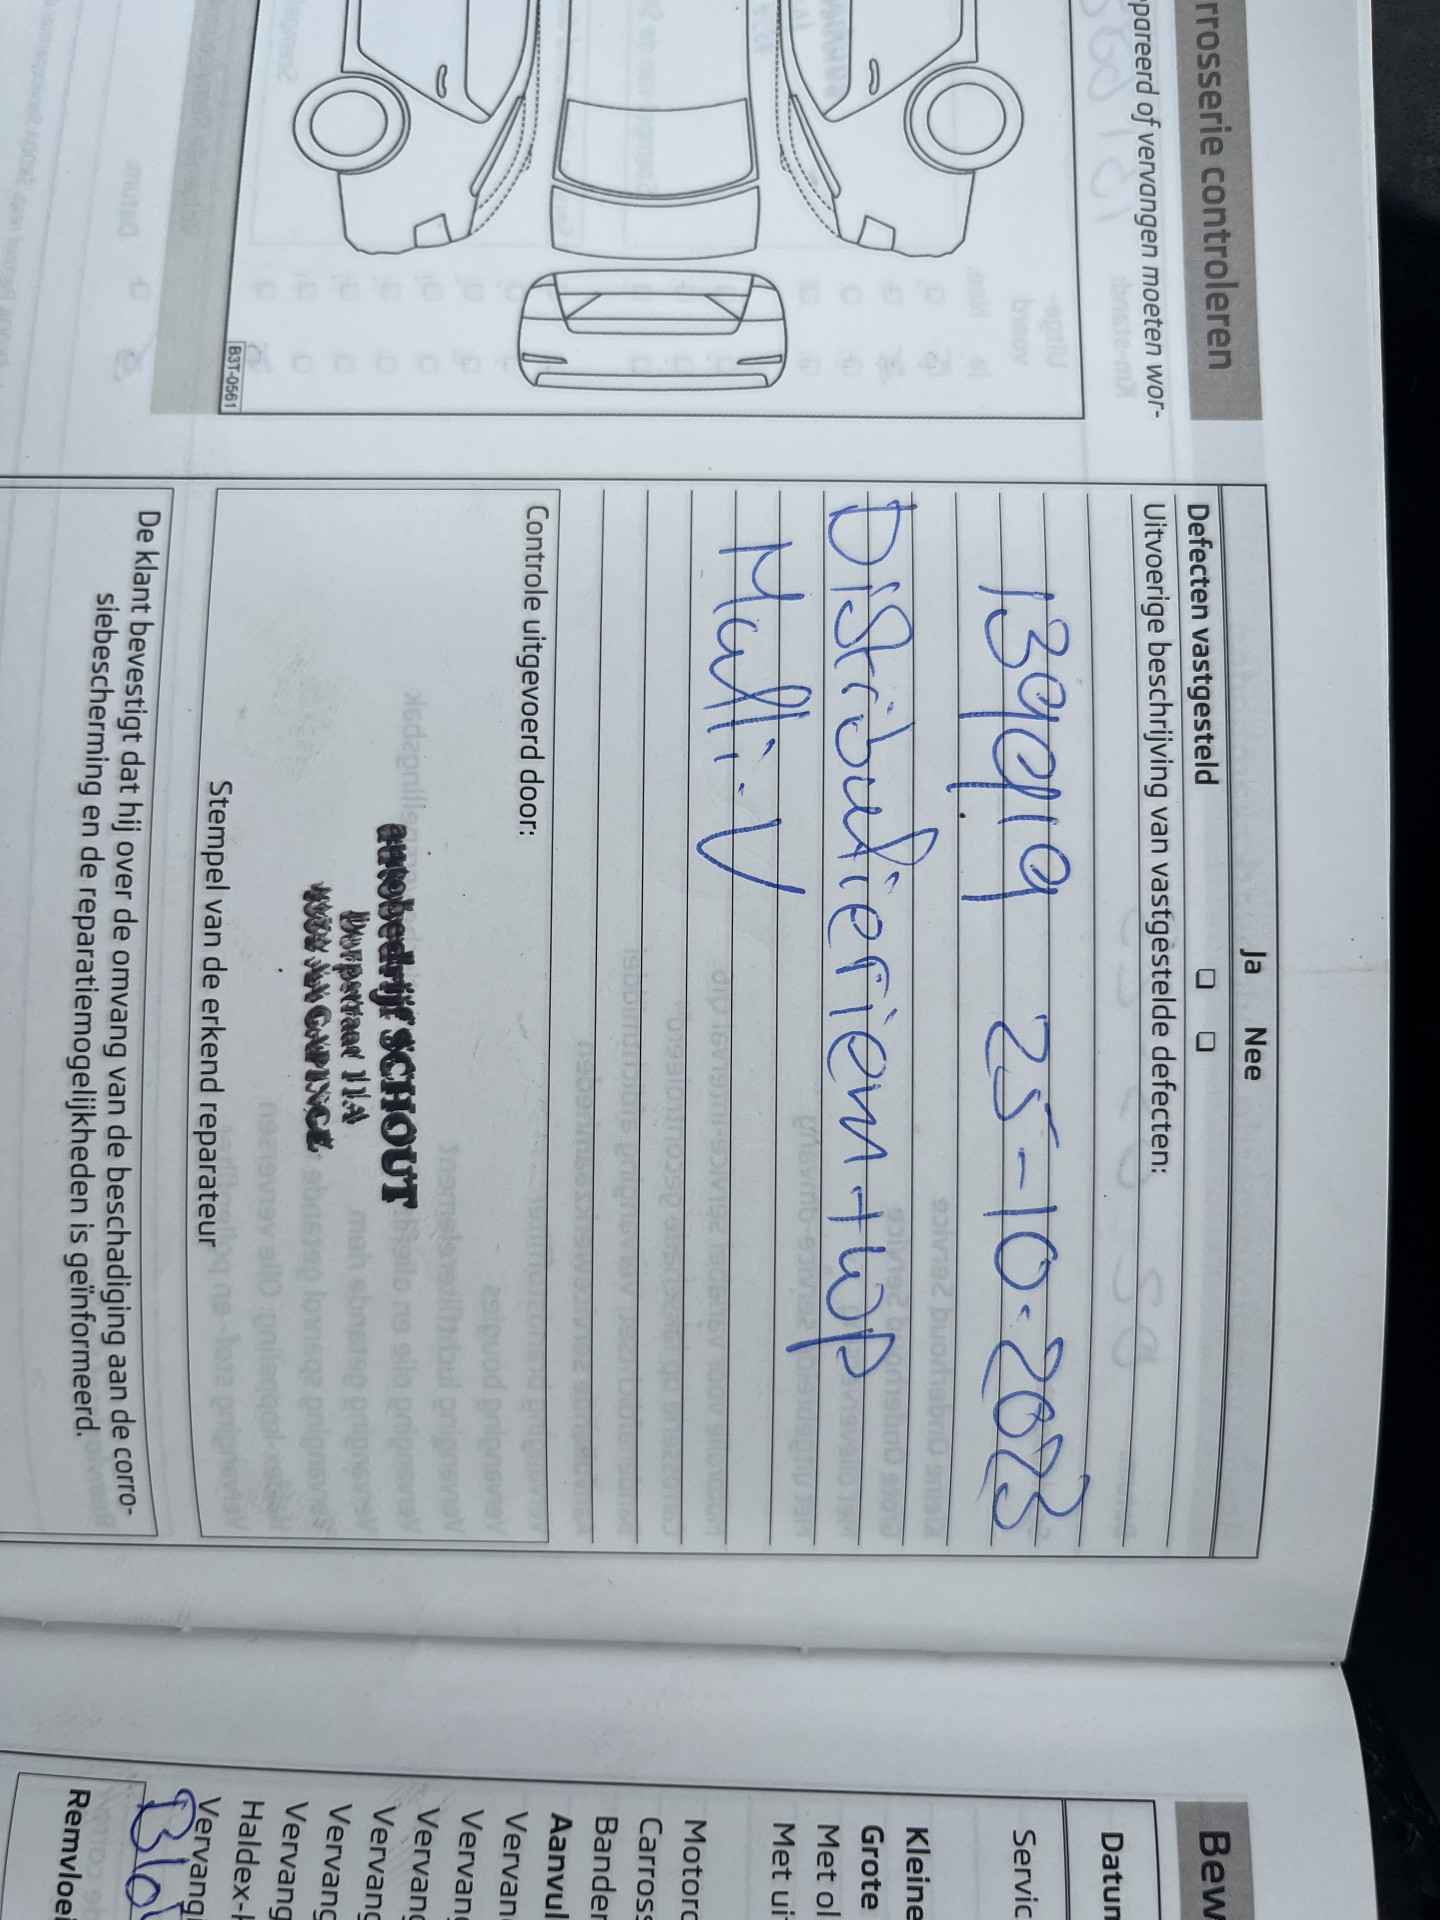 rrosserie controleren
pareerd of vervangen moeten wor-
B3T-0561
Ja Nee
Defecten vastgesteld
Uitvoerige beschrijving van vastgestelde defecten:
139919 25-10-2023
Distributieriem + WP
Multi-V
Controle uitgevoerd door:
autobedrijf SCHOUT
Stempel van de erkend reparateur
De klant bevestigt dat hij over de omvang van de beschadiging aan de corro-
siebescherming en de reparatiemogelijkheden is geïnformeerd.
Bew
Datum
Servic
Kleine
Grote
Met ol
Met ui
Motorc
Carross
Banden
Aanvul
Vervan
Vervan
Vervang
Vervang
Vervang
Vervang
Haldex-
Vervang
Remvloei